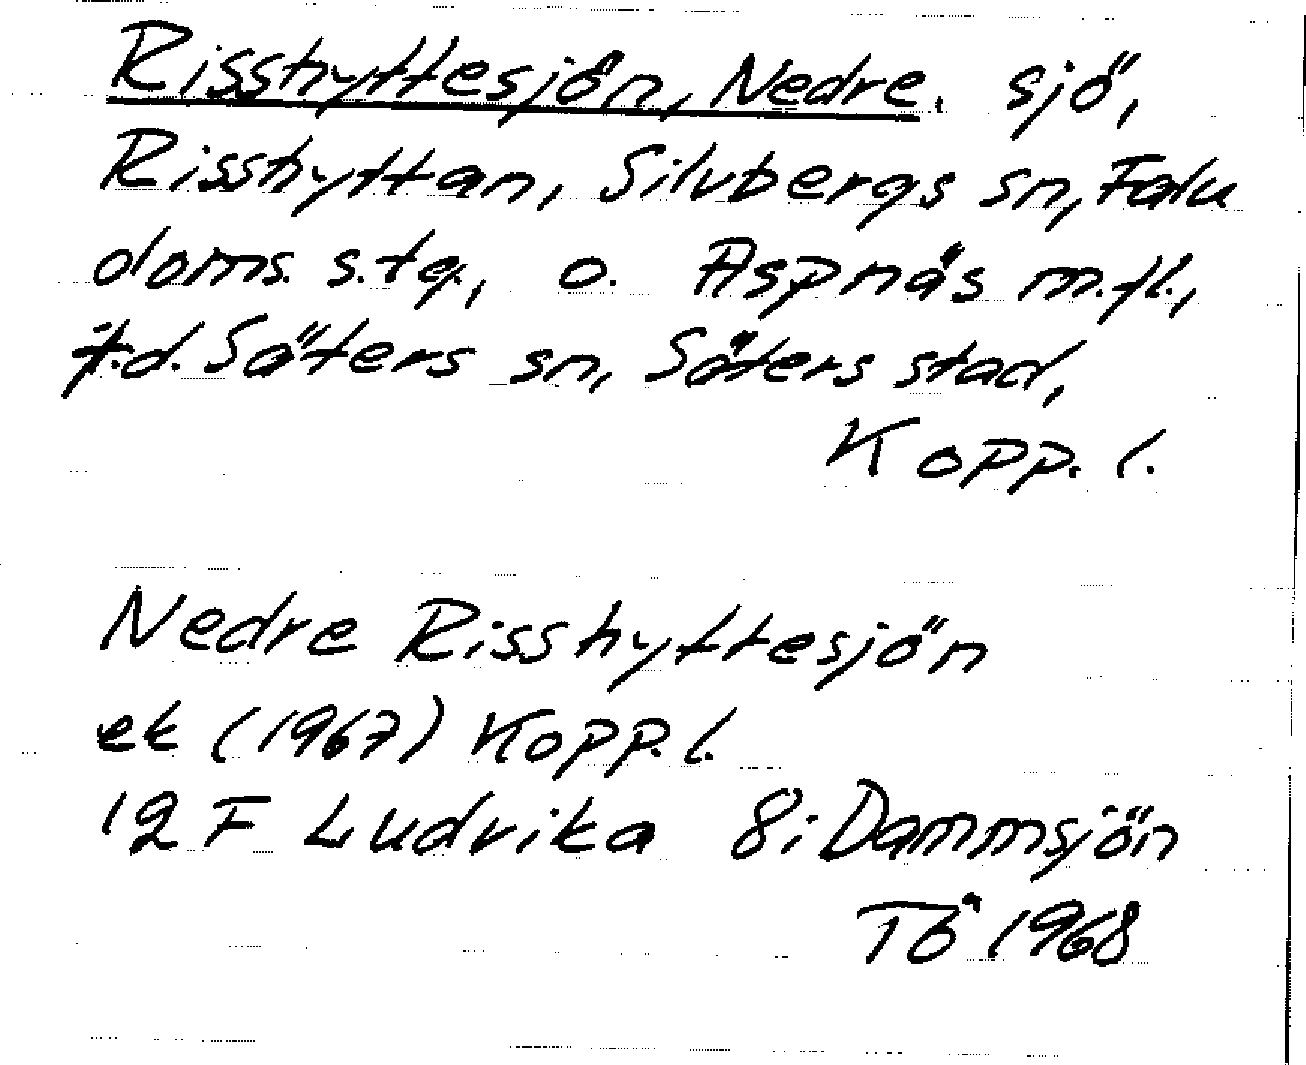 Risshyttesjön, Nedre. sjö,
Risshyttan, Silvbergs sn, Falu
doms. s.tg., o. Aspnäs m.fl.,
f.d. Säters sn, Säters stad,
Kopp. l.
Nedre Risshyttesjön
ek (1967) Kopp. l.
12 F Ludvika 8i Dammsjön
TÖ 1968